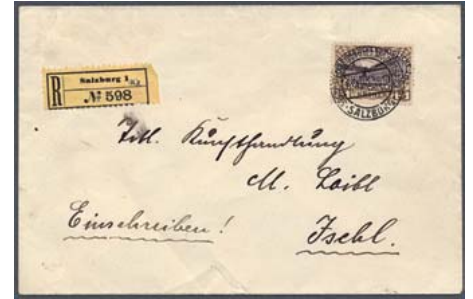 Salzburg 1
R № 598
SALZBURG
Titl. Kunsthandlung
M. Loibl
Einschreiben!
Ischl.